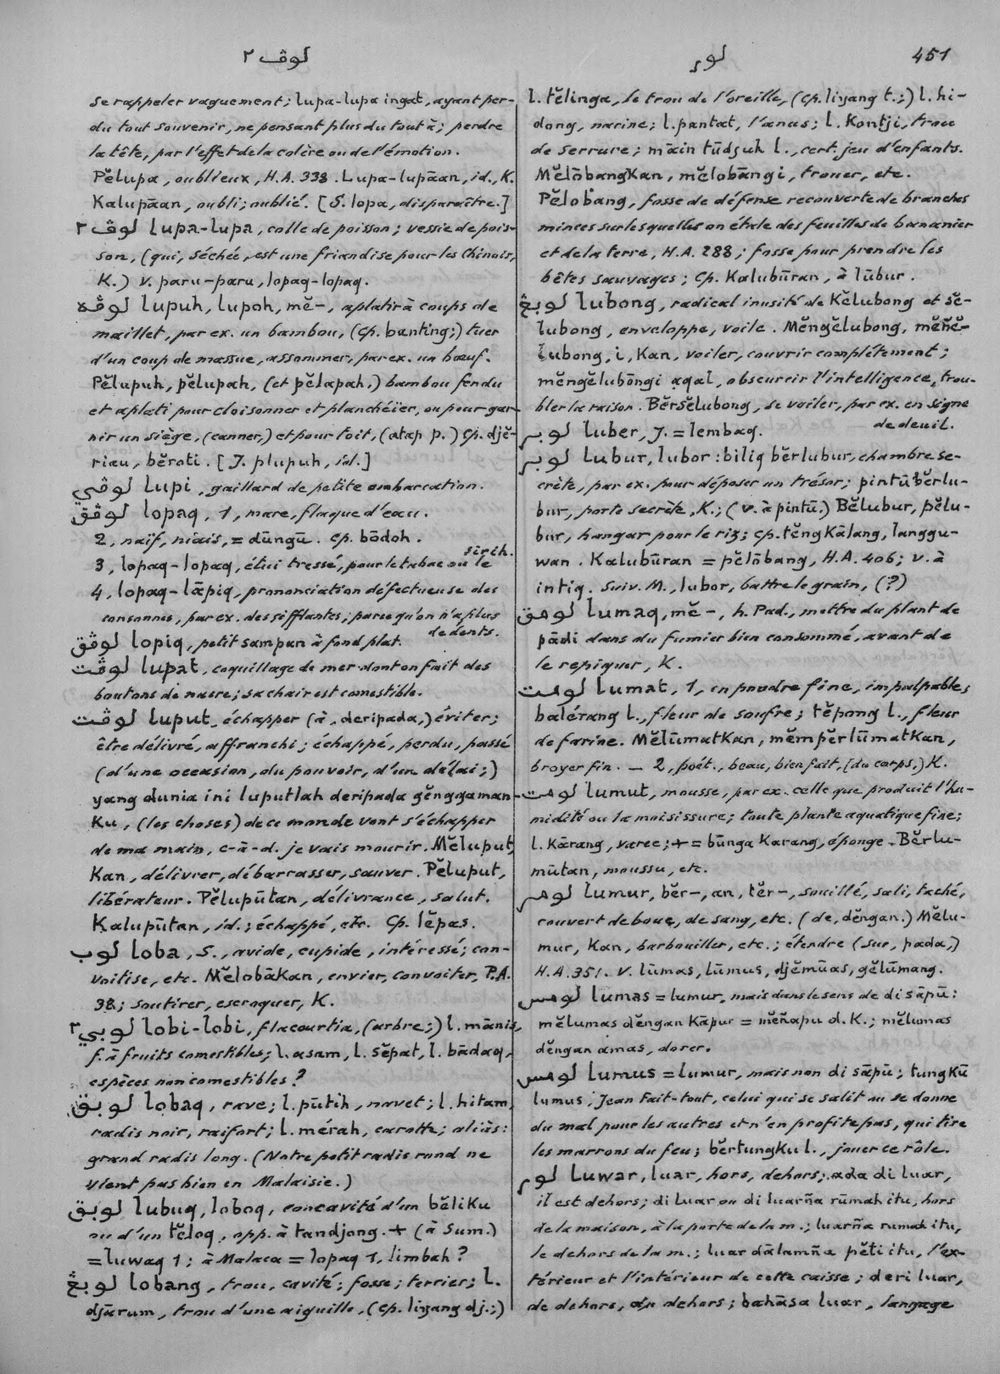 لوڤ ٢
لور
451
se rappeler vaguement; lupa-lupa ingat, ayant per-
du tout souvenir, ne pensant plus du tout à; perdre
la tête, par l'effet de la colère ou de l'émotion.
Pĕlupa, oublieux, H.A. 338. Lupa-lupāan, id., K.
Kalupāan, oubli; oublié. [S. lopa, disparaître.]
لوڤ ٢ lupa-lupa, colle de poisson; vessie de pois-
son, (qui, séchée, est une friandise pour les Chinois,
K.) v. paru-paru, lopaq-lopaq.
لوڤه lupuh, lupoh, mĕ-, aplatir à coups de
maillet, par ex. un bambou, (cp. banting;) tuer
d'un coup de massue, assommer, par ex. un bœuf.
Pĕlupuh, pĕlupah, (et pĕlapah,) bambou fendu
et aplati pour cloisonner et planchéier, ou pour gar-
nir un siège, (canner,) et pour toit, (atap p.) Cp. djĕ-
riau, bĕroti. [J. plupuh, id.]
لوڤي lupi, gaillard de petite embarcation.
لوڤق lopaq, 1, mare, flaque d'eau.
2, naïf, niais, = dūngū. Cp. bādoh.
3, lopaq-lopaq, étui tressé, pour le tabac ou le sirih.
4, lopaq-lāpiq, prononciation défectueuse des
consonnes, par ex. des sifflantes; parce qu'on n'a plus
de dents.
لوڤق lopiq, petit sampan à fond plat.
لوڤت lupat, coquillage de mer dont on fait des
boutons de nacre; sa chair est comestible.
لوڤت luput, échapper (à, deripada,) éviter;
être délivré, affranchi; échappé, perdu, passé
(d'une occasion, du pouvoir, d'un délai;)
yang dunia ini luputlah deripada gĕnggaman-
Ku, (les choses) de ce monde vont s'échapper
de ma main, c-à-d. je vais mourir. Mĕluput,
Kan, délivrer, débarrasser, sauver. Pĕluput,
libérateur. Pĕlupūtan, délivrance, salut.
Kalupūtan, id.; échappé, etc. Cp. lĕpas.
لوب loba, S., avide, cupide, intéressé; con-
voitise, etc. MĕlobāKan, envier, convoiter, P.A.
38; soutirer, escroquer, K.
لوبي ٢ lobi-lobi, flacourtia, (arbre;) l. mānis,
f. à fruits comestibles; l. asam, l. sĕpat, l. bādaq,
espèces non comestibles?
لوبق lobaq, rave; l. pūtih, navet; l. hitam,
radis noir, raifort; l. mérah, carotte; aliàs:
grand radis long. (Notre petit radis rond ne
vient pas bien en Malaisie.)
لوبق lubuq, loboq, concavité d'un bĕliKu
ou d'un tĕloq, opp. à tandjong. + (à Sum.)
= luwaq 1; à Malaca = lopaq 1, limbah?
لوبڠ lobang, trou, cavité; fosse; terrier; l.
djārum, trou d'une aiguille, (cp. liyang dj.;)
l. tĕlinga, le trou de l'oreille, (cp. liyang t.;) l. hi-
dong, narine; l. pantat, l'anus; l. Kontji, trou
de serrure; māin tūdjuh l., cert. jeu d'enfants.
MĕlōbangKan, mĕlobāngi, trouer, etc.
Pĕlobang, fosse de défense recouverte de branches
minces sur lesquelles on étale des feuilles de bananier
et de la terre, H.A. 288; fosse pour prendre les
bêtes sauvages; Cp. Kalubūran, à lūbur.
لوبڠ lubong, radical inusité de Kĕlubong et sĕ-
lubong, enveloppe, voile. Mĕngĕlubong, mĕñĕ-
lubong, i, Kan, voiler, couvrir complétement;
mĕngĕlubōngi aqal, obscurcir l'intelligence, trou-
bler la raison. Bĕrsĕlubong, se voiler, par ex. en signe
de deuil.
لوبر luber, J. = lembaq.
لوبر Lubur, lubor: biliq bĕrlubur, chambre se-
crète, par ex. pour déposer un trésor; pintū bĕrlu-
bur, porte secrète, K.; (v. à pintū.) Bĕlubur, pĕlu-
bur, hangar pour le riz; cp. tĕngKālang, langgu-
wan. Kalubūran = pĕlōbang, H.A. 406; v. à
intiq. Suiv. M., lubor, battre le grain, (?)
لومق lumaq, mĕ-, h. Pad., mettre du plant de
pādi dans du fumier bien consommé, avant de
le repiquer, K.
لومت lumat, 1, en poudre fine, impalpable;
balérang l., fleur de soufre; tĕpong l., fleur
de farine. MĕlūmatKan, mĕmpĕrlūmatKan,
broyer fin. — 2, poét., beau, bien fait, (du corps,) K.
لومت lumut, mousse, par ex. celle que produit l'hu-
midité ou la moisissure; toute plante aquatique fine;
l. Kārang, varec; + = būnga Karang, éponge. Bĕrlu-
mūtan, moussu, etc.
لومر lumur, bĕr-, an, tĕr-, souillé, sali, taché,
couvert de boue, de sang, etc. (de, dĕngan.) Mĕlu-
mur, Kan, barbouiller, etc.; étendre (sur, pada,)
H.A. 351. V. lūmas, lūmus, djĕmūas, gĕlūmang.
لومس lumas = lumur, mais dans le sens de di sāpū:
mĕlumas dĕngan Kāpur = mĕñapu d. K.; mĕlumas
dĕngan amas, dorer.
لومس lumus = lumur, mais non di sāpū; tungKū
lumus, Jean fait-tout, celui qui se salit ou se donne
du mal pour les autres et n'en profite pas, qui tire
les marrons du feu; bĕrtungKu l., jouer ce rôle.
لور luwar, luar, hors, dehors; ada di luar,
il est dehors; di luar ou di luarña rūmah itu, hors
de la maison, à la porte de la m.; luarña rumah itu,
le dehors de la m.; luar dālamña pĕti itu, l'ex-
térieur et l'intérieur de cette caisse; deri luar,
de dehors, du dehors; bahāsa luar, langage